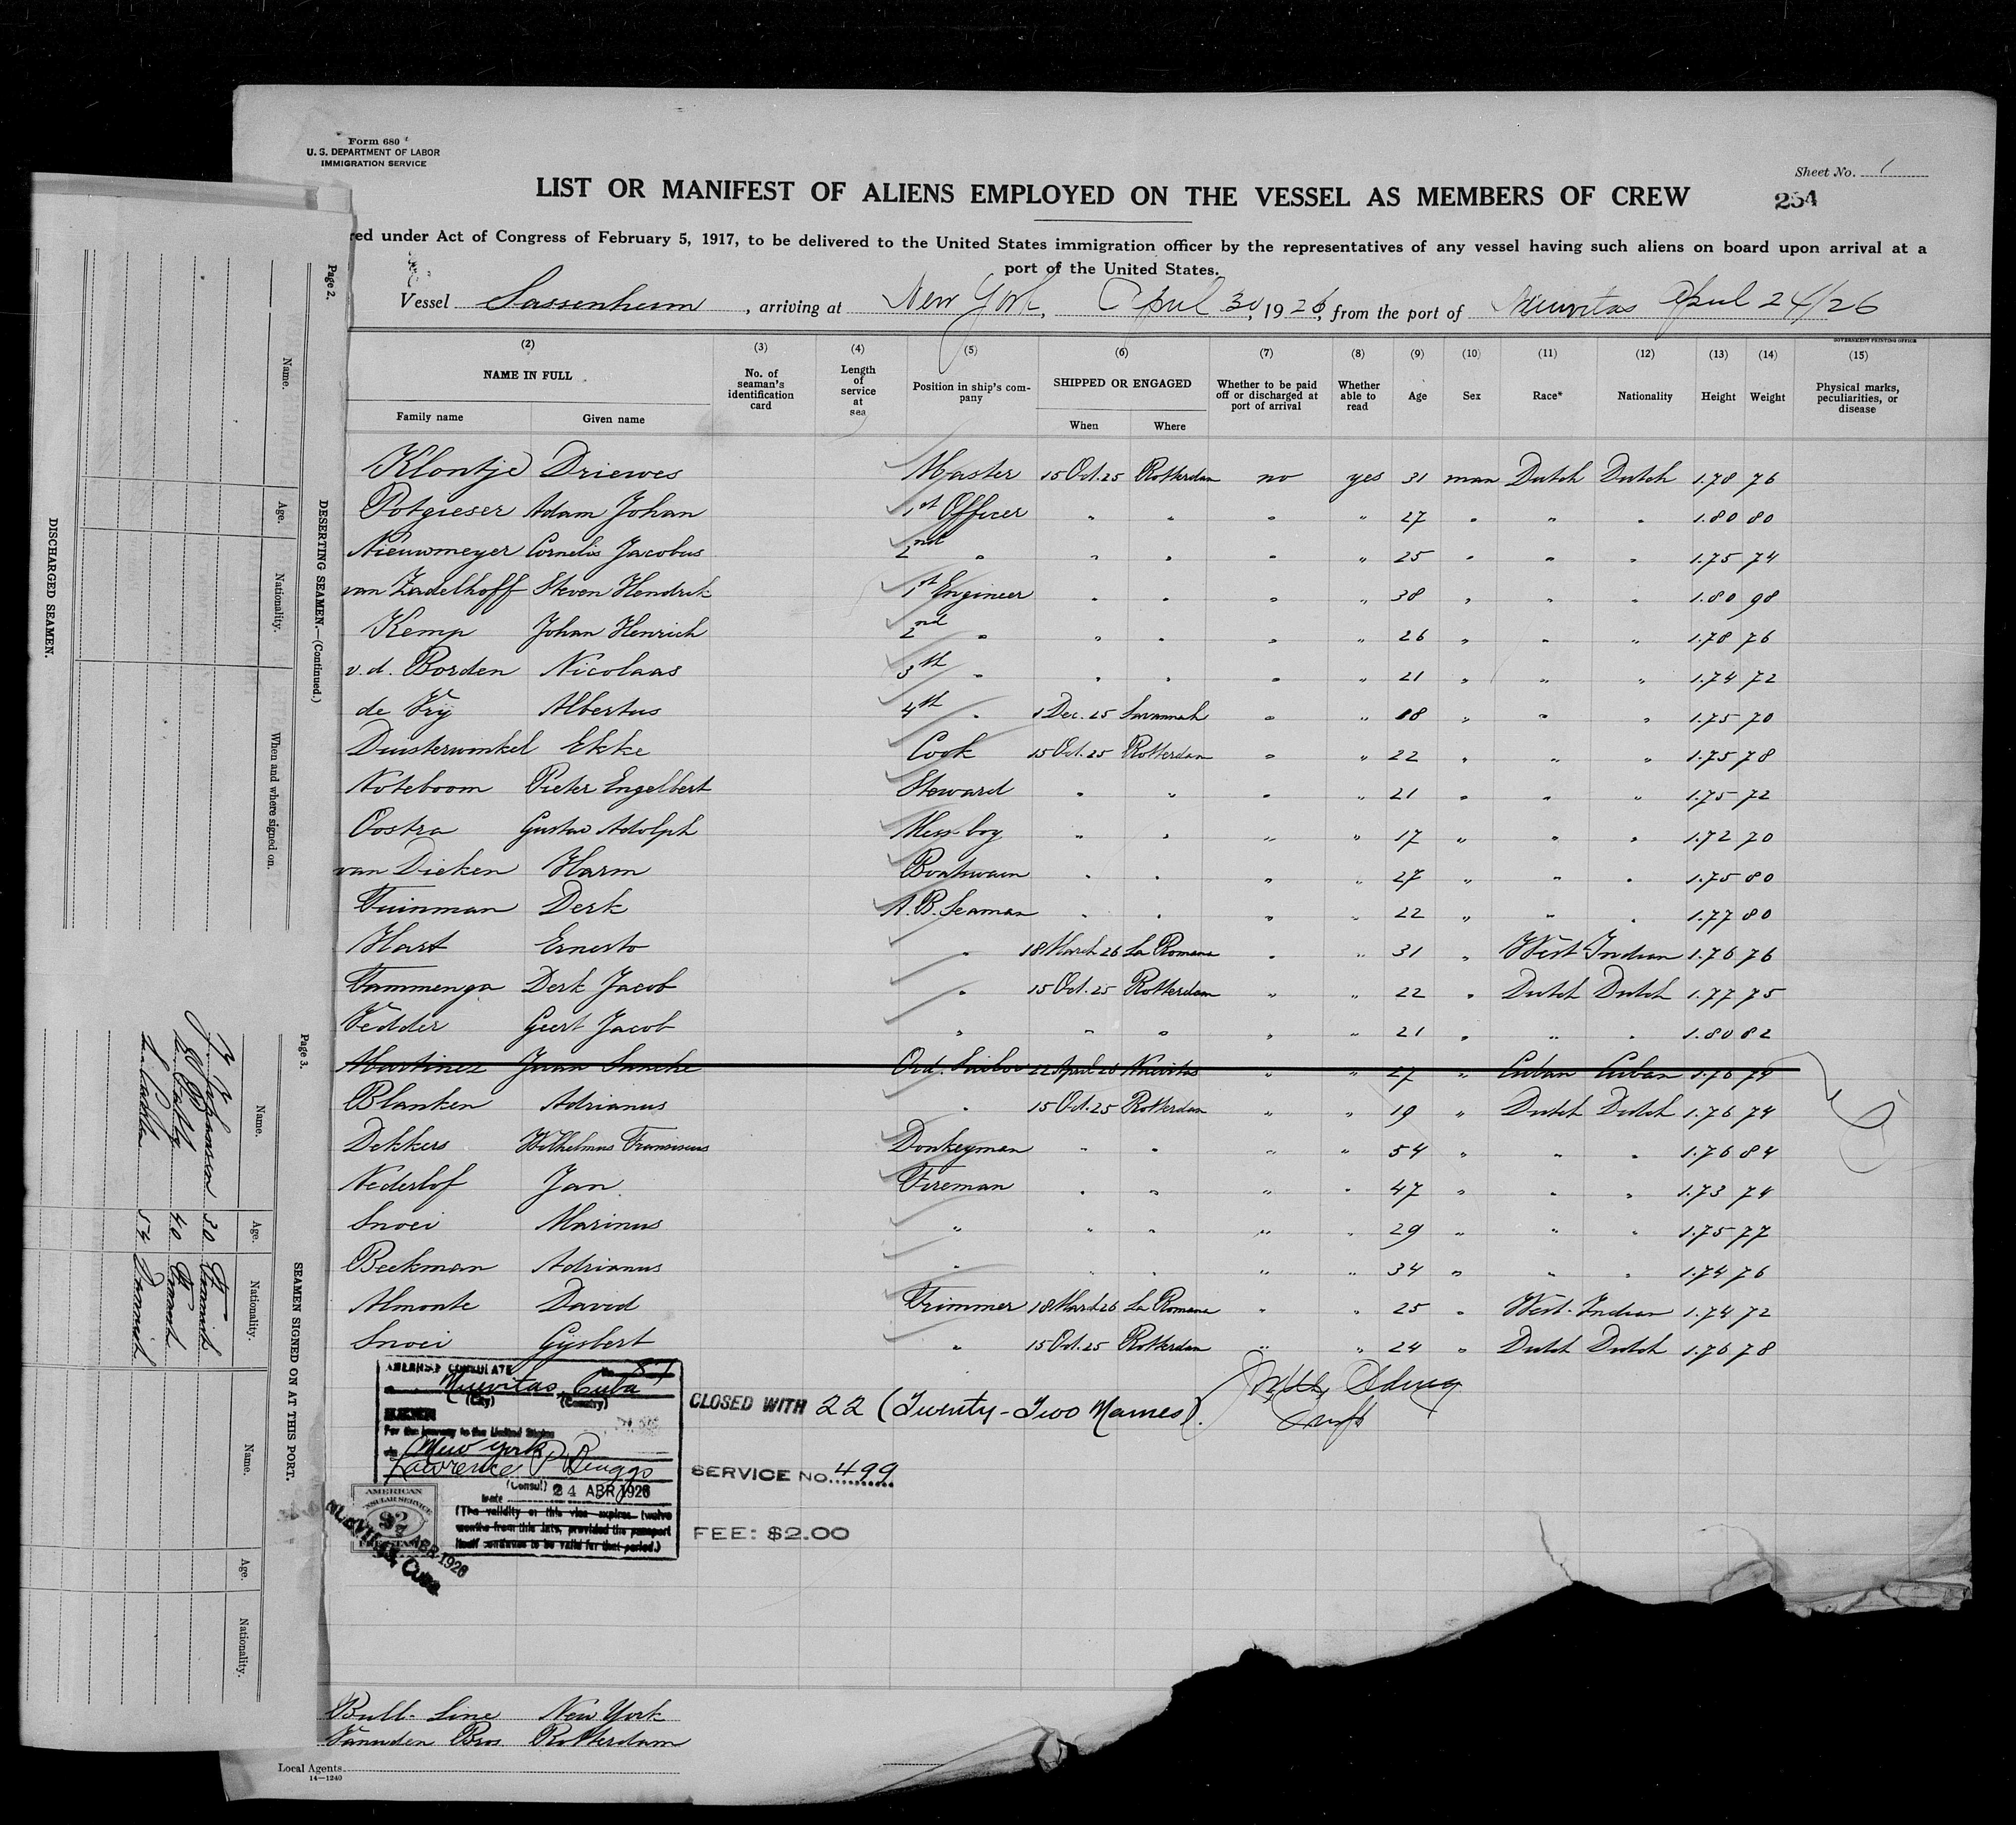 Form 680
U. S. DEPARTMENT OF LABOR
IMMIGRATION SERVICE
Sheet No. 1
LIST OR MANIFEST OF ALIENS EMPLOYED ON THE VESSEL AS MEMBERS OF CREW
254
red under Act of Congress of February 5, 1917, to be delivered to the United States immigration officer by the representatives of any vessel having such aliens on board upon arrival at a
port of the United States.
Vessel Sassenheim, arriving at New York, April 30, 1926, from the port of Nuevitas April 24/26
GOVERNMENT PRINTING OFFICE
(2) (3) (4) (5) (6) (7) (8) (9) (10) (11) (12) (13) (14) (15)
NAME IN FULL No. of seaman's identification card Length of service at sea Position in ship's company SHIPPED OR ENGAGED Whether to be paid off or discharged at port of arrival Whether able to read Age Sex Race* Nationality Height Weight Physical marks, peculiarities, or disease
Family name Given name When Where
Klontje Driewes Master 15 Oct. 25 Rotterdam no yes 31 man Dutch Dutch 1.78 76
Potgieser Adam Johan 1st Officer " " " " 27 " " " 1.80 80
Nieuwmeyer Cornelis Jacobus 2nd " " " " " 25 " " " 1.75 74
van Zadelhoff Steven Hendrik 1st Engineer " " " " 38 " " " 1.80 98
Kemp Johan Henrich 2nd " " " " " 26 " " " 1.78 76
v.d. Borden Nicolaas 3th " " " " " 21 " " " 1.74 72
de Vrÿ Albertus 4th " 1 Dec. 25 Savannah " " 18 " " " 1.75 70
Duisterwinkel Ekke Cook 15 Oct. 25 Rotterdam " " 22 " " " 1.75 78
Noteboom Pieter Engelbert Steward " " " " 21 " " " 1.75 72
Oostra Gustav Adolph Mess boy " " " " 17 " " " 1.72 70
van Dieken Harm Boatswain " " " " 27 " " " 1.75 80
Tuinman Derk A.B. Seaman " " " " 22 " " " 1.77 80
Hart Ernesto " 18 March 26 La Romana " " 31 " West-Indian 1.76 76
Tammenga Derk Jacob " 15 Oct. 25 Rotterdam " " 22 " Dutch Dutch 1.77 75
Vedder Geert Jacob " " " " " 21 " " " 1.80 82
Martinez Juan Sanche Ord. Sailor 22 April 26 Nuevitas " " 27 " Cuban Cuban 1.76 74
Blanken Adrianus " 15 Oct. 25 Rotterdam " " 19 " Dutch Dutch 1.76 74
Dekkers Wilhelmus Franciscus Donkeyman " " " " 54 " " " 1.76 84
Nederlof Jan Fireman " " " " 47 " " " 1.73 74
Snoei Marinus " " " " " 29 " " " 1.75 77
Beekman Adrianus " " " " " 34 " " " 1.74 76
Almonte David Trimmer 18 March 26 La Romana " " 25 " West-Indian 1.74 72
Snoei Gysbert " 15 Oct. 25 Rotterdam " " 24 " Dutch Dutch 1.76 78
AMERICAN CONSULATE No. 81
Nuevitas, Cuba
(City) (Country)
For the journey to the United States
New York
Lawrence P Briggs
(Consul)
Date 24 ABR 1926
(The validity of this visa expires twelve
months from this date, provided the passport
itself continues to be valid for that period.)
AMERICAN
CONSULAR SERVICE
$2
FEE STAMP
ABR 1926
NUEVITAS, Cuba
CLOSED WITH 22 (Twenty-Two Names).
SERVICE NO. 499
FEE: $2.00
Bull-Line New York
Vanuden Bros Rotterdam
Local Agents
14—1240
Page 2.
DESERTING SEAMEN.—(Continued.)
Name. Age. Nationality. When and where signed on.
DISCHARGED SEAMEN.
Page 3.
SEAMEN SIGNED ON AT THIS PORT.
Name. Age. Nationality. Name. Age. Nationality.
30
40
54 Danish